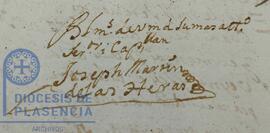 B.l.m.o de Vmd su mas att.o
Ser.or i Cap.llan
Joseph Martin
de las Heras
DIOCESIS DE
PLASENCIA